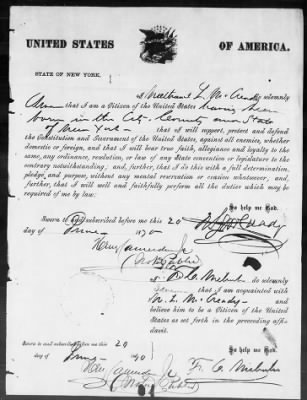 UNITED STATES OF AMERICA.
STATE OF NEW YORK,
I, L. Mc Cready do solemnly
that I am a Citizen of the United States having been
born in the City County and State
of New York - that I will support, protect and defend
the Constitution and Government of the United States, against all enemies, whether
domestic or foreign, and that I will bear true faith, allegiance and loyalty to the
same, any ordinance, resolution, or law of any State convention or legislature to the
contrary notwithstanding; and further, that I do this with a full determination,
pledge, and purpose, without any mental reservation or evasion whatsoever; and,
further, that I will well and faithfully perform all the duties which may be
required of me by law:
So help me God.
Sworn to and subscribed before me this 20
day of June 1870
Notary Public
I, do solemnly
that I am acquainted with
N. L. Mc Cready -
and believe
him to be a Citizen of the United
States as set forth in the preceding affi-
davit.
Sworn to and subscribed before me this 20
day of June 1870
So help me God.
Notary Public